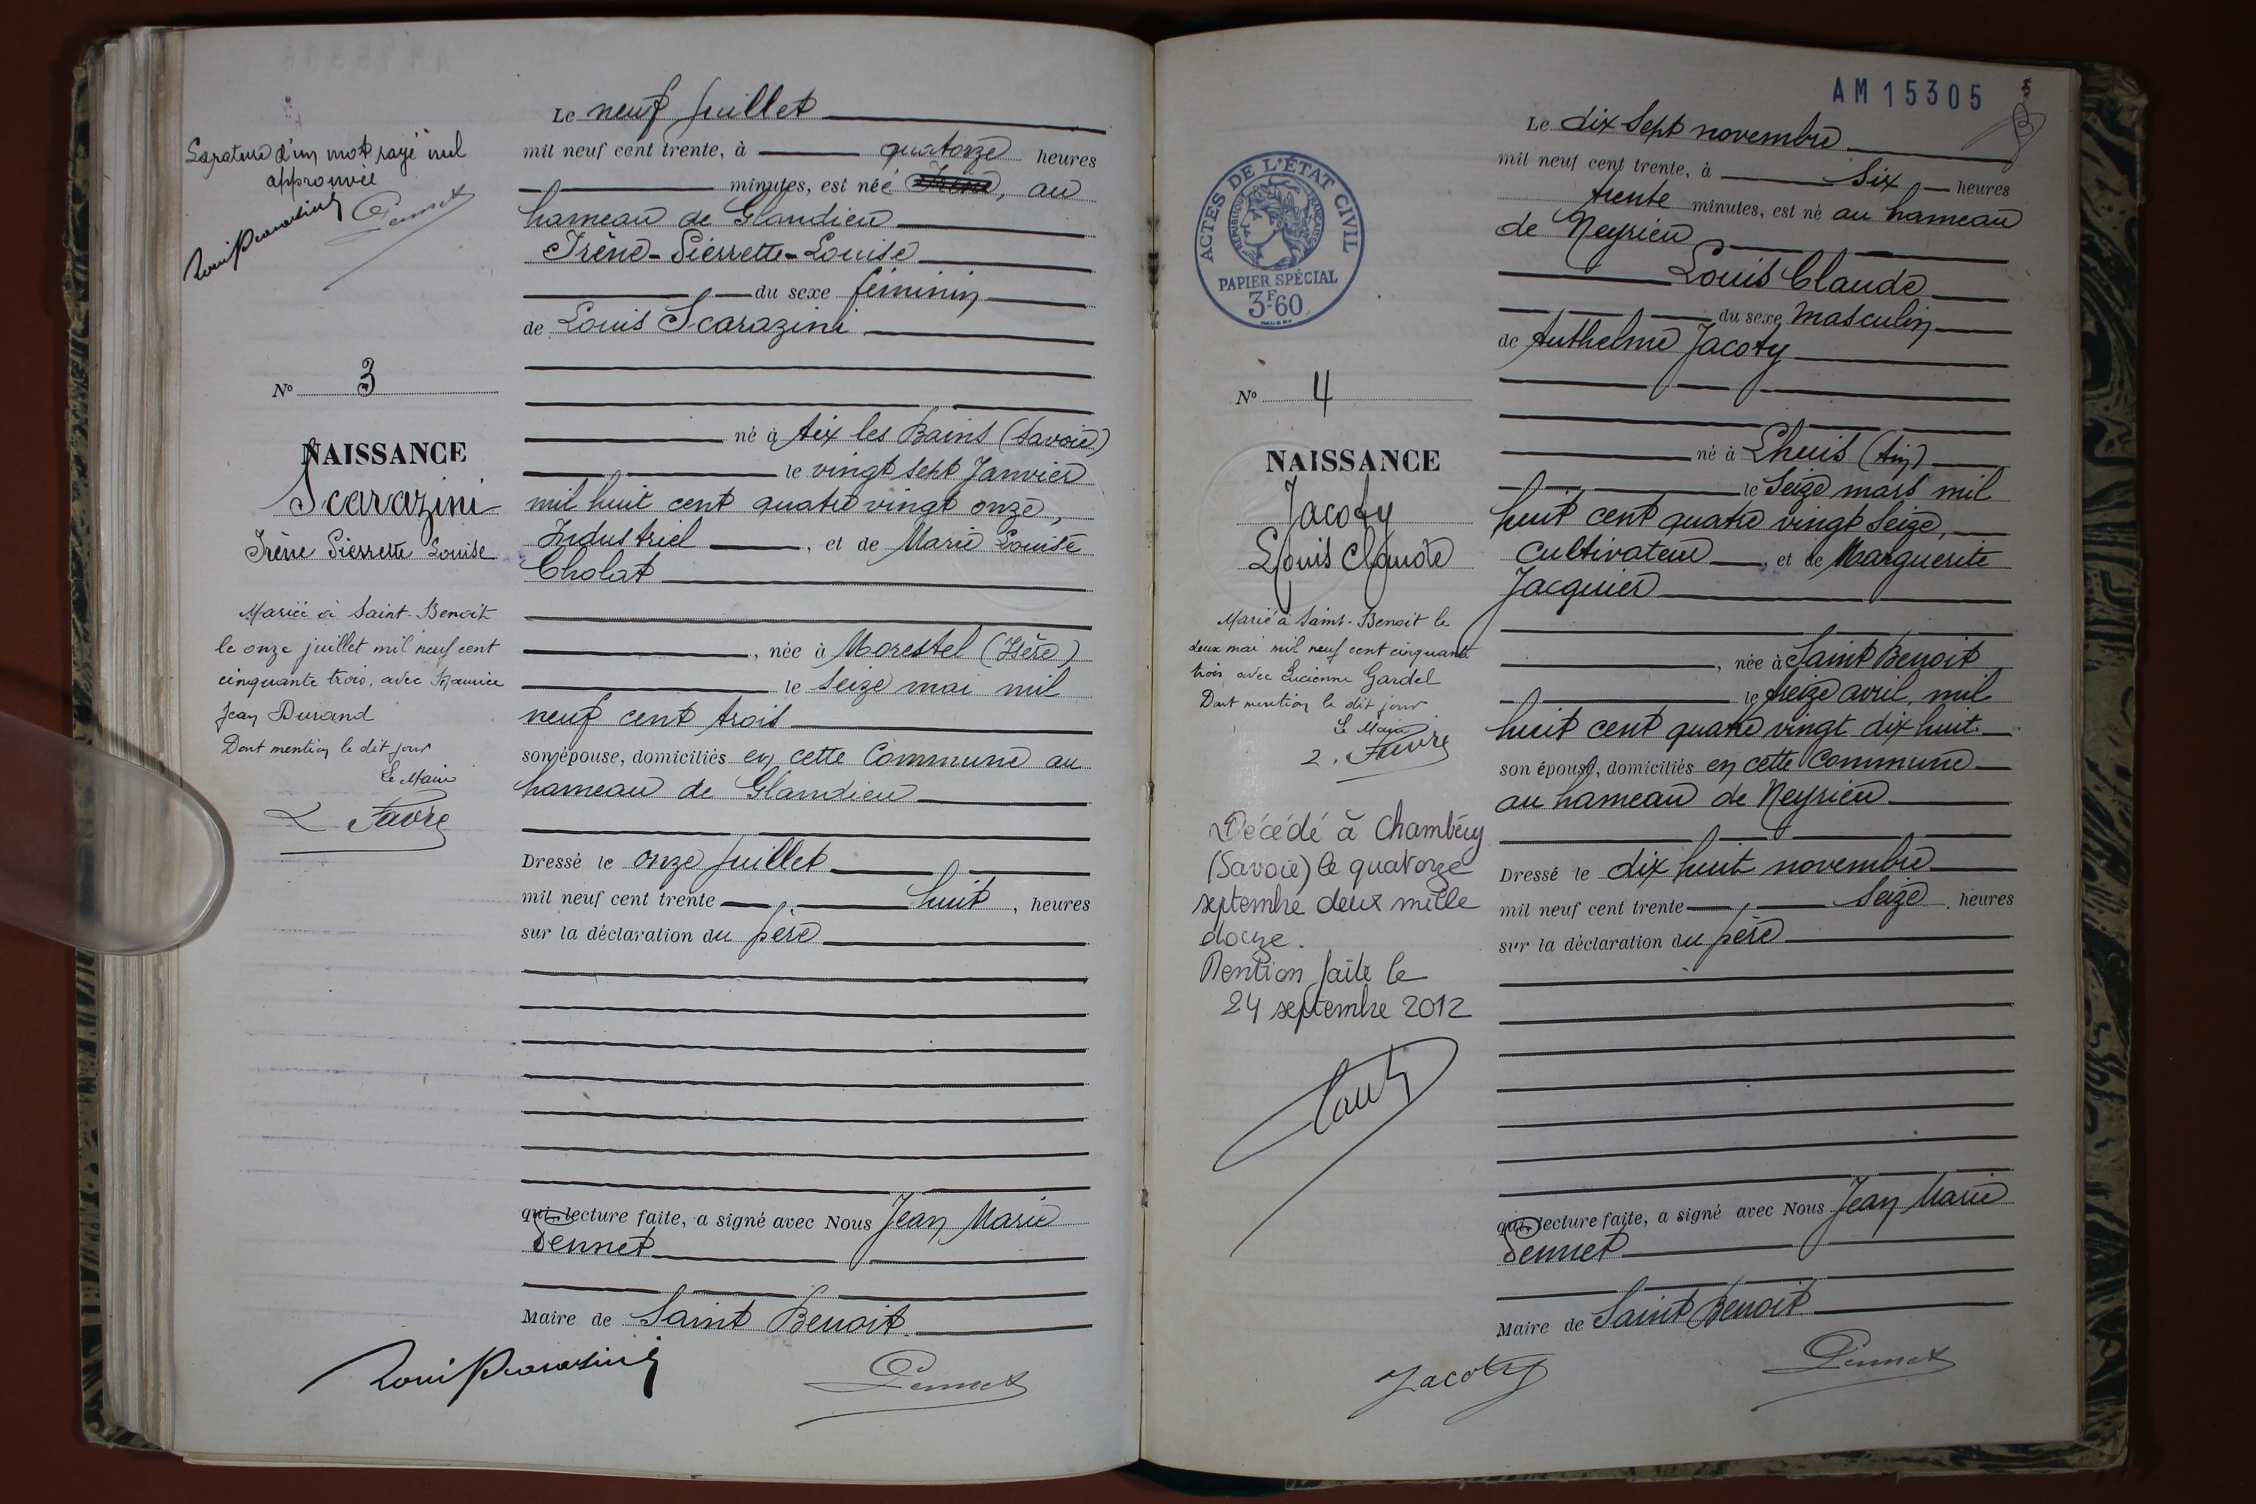 La rature d'un mot rayé nul
approuvée
Pennet
N° 3
NAISSANCE
Scarazini
Irène Pierrette Louise
Mariée à Saint-Benoit
le onze juillet mil neuf cent
cinquante trois, avec Maurice
Jean Durand
Dont mention le dit jour
Le Maire
L. Favre
Le neuf juillet
mil neuf cent trente, à quatorze heures
minutes, est née Irène, au
hameau de Glandieu
Irène-Pierrette-Louise
du sexe féminin
de Louis Scarazini
né à Aix les Bains (Savoie)
le vingt sept Janvier
mil huit cent quatre vingt onze,
Industriel, et de Marie Louise
Cholat
, née à Morestel (Isère)
le seize mai mil
neuf cent trois
son épouse, domiciliés en cette Commune au
hameau de Glandieu
Dressé le onze juillet
mil neuf cent trente, huit, heures
sur la déclaration du père
qui, lecture faite, a signé avec Nous Jean Marie
Pennet
Maire de Saint Benoit
Pennet
AM15305
5
ACTES DE L'ÉTAT CIVIL
RÉPUBLIQUE FRANÇAISE
PAPIER SPÉCIAL
3F60
N° 4
NAISSANCE
Jacoty
Louis Claude
Marié à Saint-Benoit le
deux mai mil neuf cent cinquante
trois, avec Lucienne Gardel
Dont mention le dit jour
Le Maire
L. Favre
Décédé à Chambéry
(Savoie) le quatorze
septembre deux mille
douze.
Mention faite le
24 septembre 2012
Le dix sept novembre
mil neuf cent trente, à six heures
trente minutes, est né au hameau
de Neyrieu
Louis Claude
du sexe masculin
de Anthelme Jacoty
né à Lhuis (Ain)
le seize mars mil
huit cent quatre vingt seize,
cultivateur, et de Marguerite
Jacquier
, née à Saint Benoit
le treize avril, mil
huit cent quatre vingt dix huit
son épouse, domiciliés en cette Commune
au hameau de Neyrieu
Dressé le dix huit novembre
mil neuf cent trente, seize, heures
sur la déclaration du père
qui, lecture faite, a signé avec Nous Jean Marie
Pennet
Maire de Saint Benoit
Jacoty
Pennet